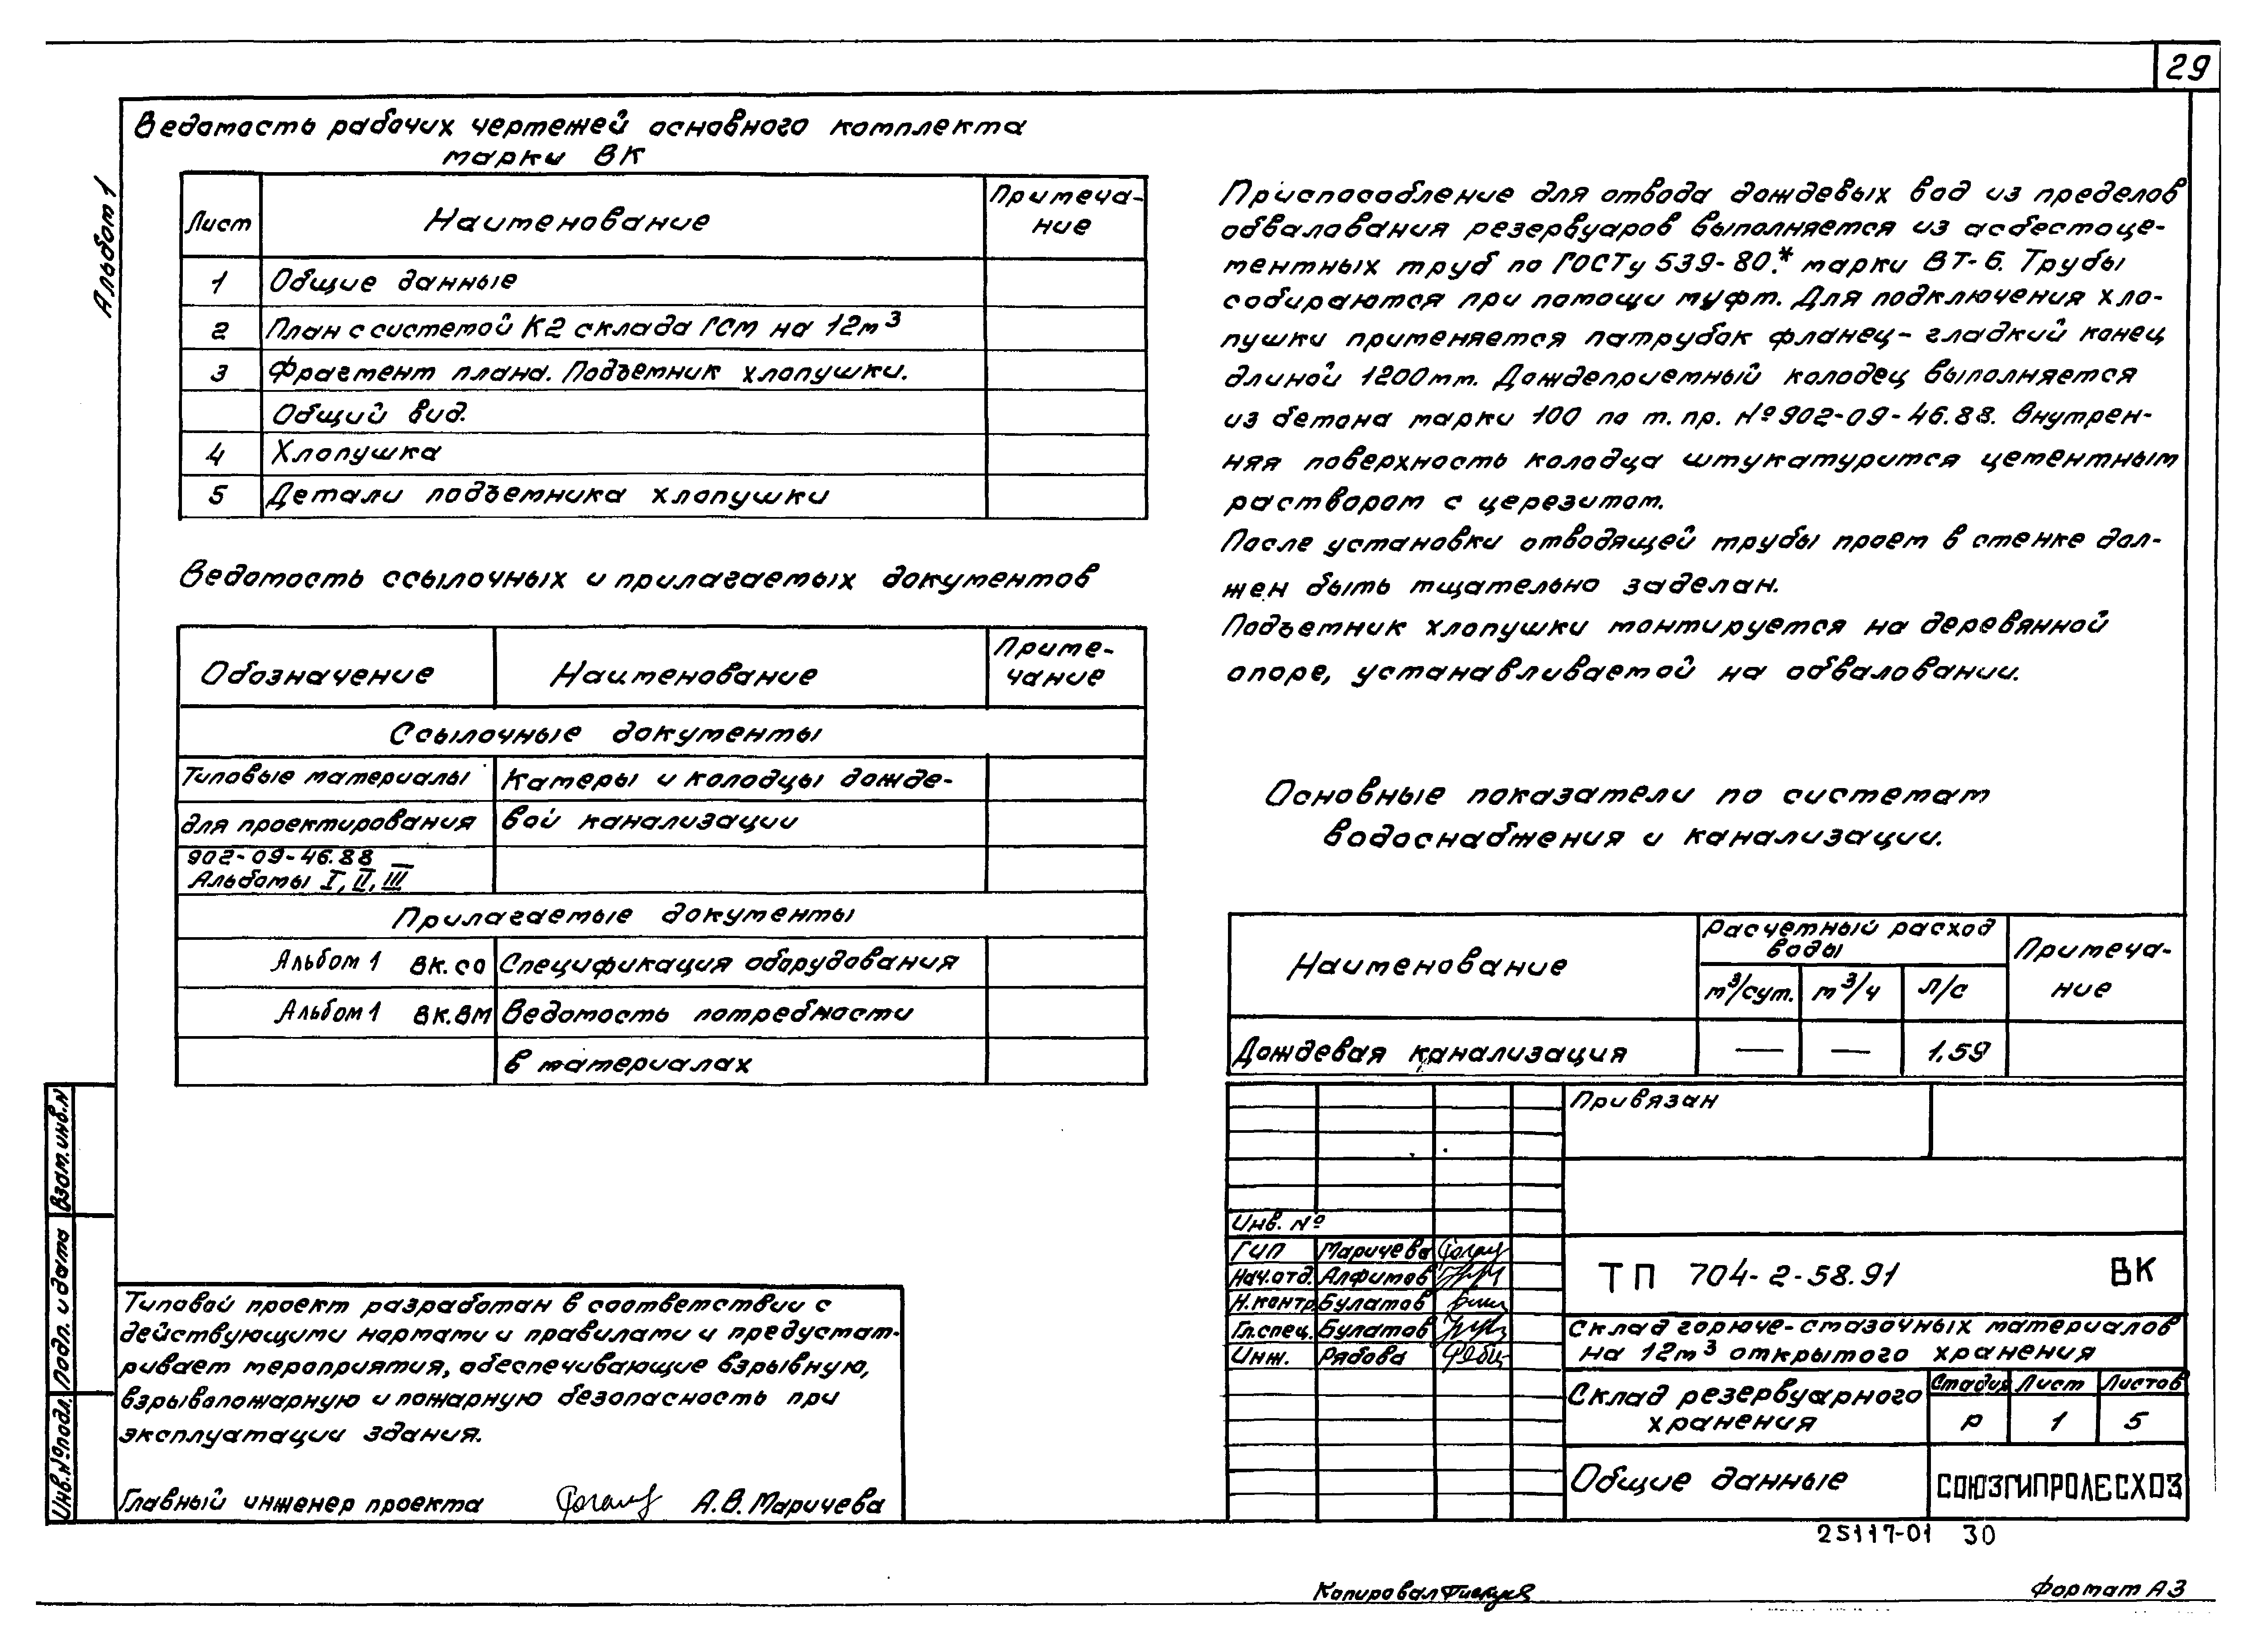 29
Альбом 1
Ведомость рабочих чертежей основного комплекта
марки ВК
Лист Наименование Примеча-
ние
1 Общие данные
2 План с системой К2 склада ГСМ на 12м³
3 Фрагмент плана. Подъемник хлопушки.
Общий вид.
4 Хлопушка
5 Детали подъемника хлопушки
Ведомость ссылочных и прилагаемых документов
Обозначение Наименование Приме-
чание
Ссылочные документы
Типовые материалы Камеры и колодцы дожде-
для проектирования вой канализации
902-09-46.88
Альбомы I, II, III
Прилагаемые документы
Альбом 1 ВК.СО Спецификация оборудования
Альбом 1 ВК.ВМ Ведомость потребности
в материалах
Типовой проект разработан в соответствии с
действующими нормами и правилами и предусмат-
ривает мероприятия, обеспечивающие взрывную,
взрывопожарную и пожарную безопасность при
эксплуатации здания.
Главный инженер проекта А.В. Маричева
Взам. инв. N
Подп. и дата
Инв. № подл.
Приспособление для отвода дождевых вод из пределов
обвалования резервуаров выполняется из асбестоце-
ментных труб по ГОСТу 539-80.* марки ВТ-6. Трубы
собираются при помощи муфт. Для подключения хло-
пушки применяется патрубок фланец-гладкий конец
длиной 1200мм. Дождеприемный колодец выполняется
из бетона марки 100 по т. пр. № 902-09-46.88. Внутрен-
няя поверхность колодца штукатурится цементным
раствором с церезитом.
После установки отводящей трубы проем в стенке дол-
жен быть тщательно заделан.
Подъемник хлопушки монтируется на деревянной
опоре, устанавливаемой на обваловании.
Основные показатели по системам
водоснабжения и канализации.
Наименование Расчетный расход
воды Примеча-
ние
м³/сут. м³/ч л/с
Дождевая канализация — — 1.59
Привязан
Инв. №
ГИП Маричева
Нач.отд. Алфимов
Н.контр. Булатов
Гл.спец. Булатов
Инж. Рядова
ТП 704-2-58.91 ВК
Склад горюче-смазочных материалов
на 12м³ открытого хранения
Склад резервуарного
хранения
Стадия Лист Листов
Р 1 5
Общие данные
СОЮЗГИПРОЛЕСХОЗ
25117-01 30
Копировал
Формат А3